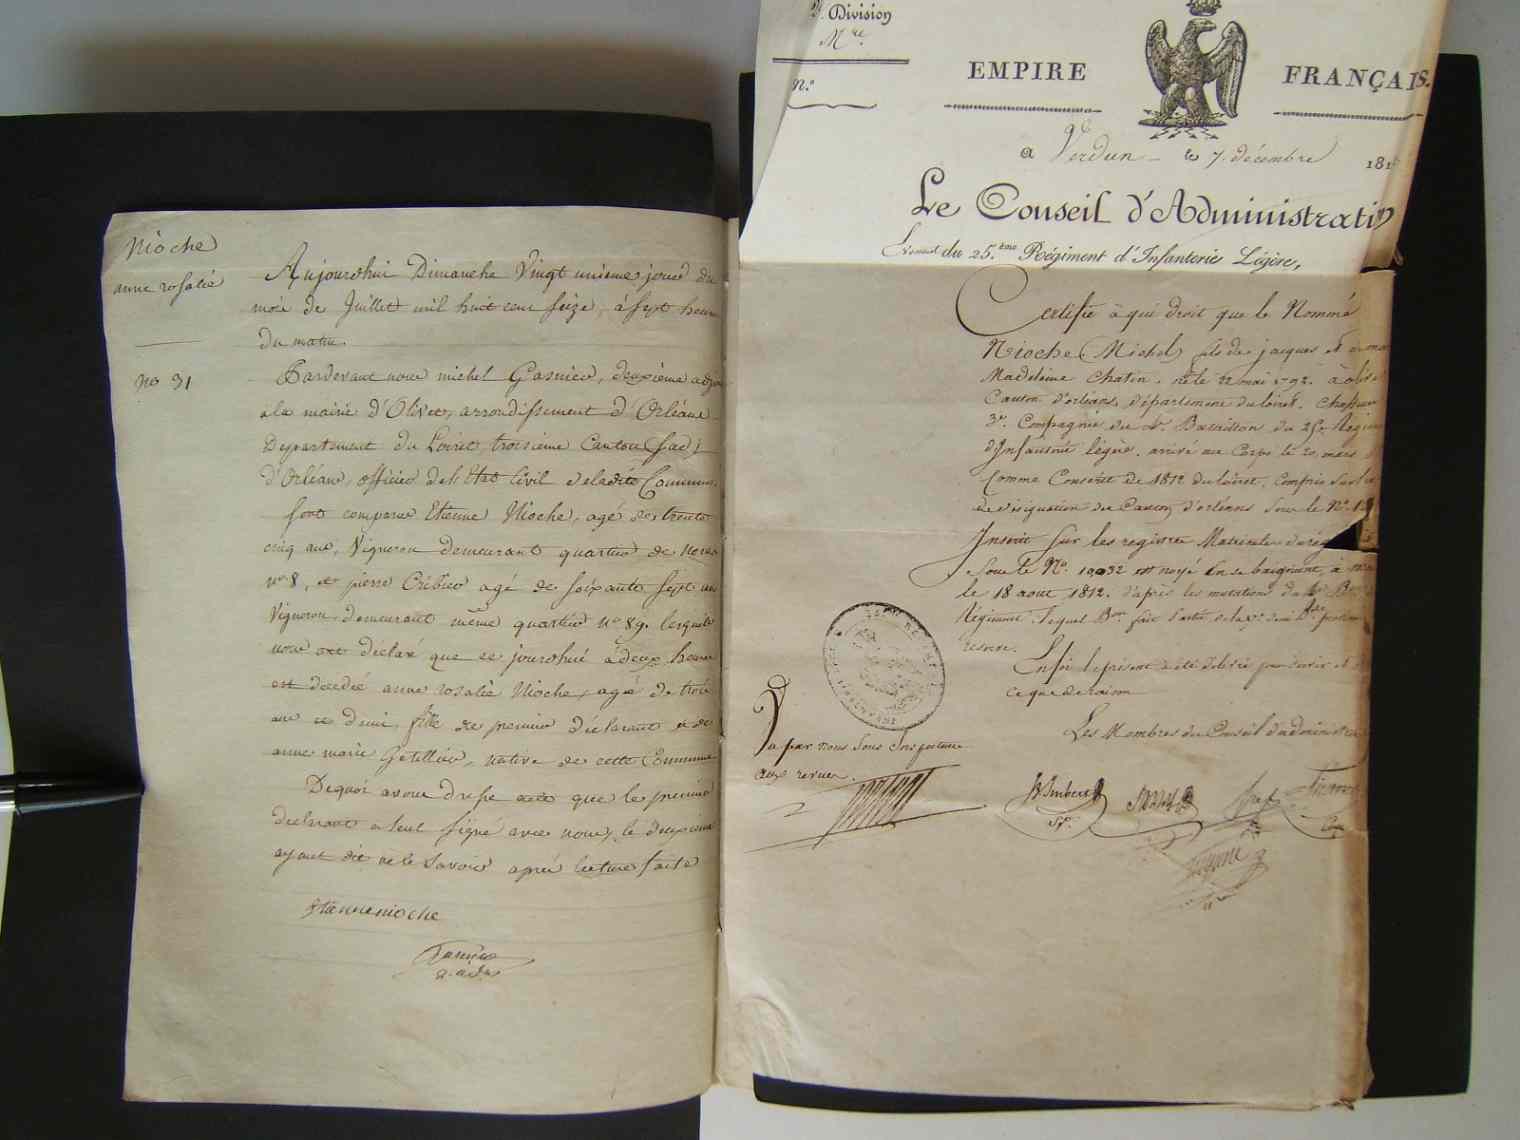 Nioche
anne rosalie
no 31
Aujourdhui Dimanche Vingt unieme jour du
mois de Juillet mil huit cent seize, à sept heure
du matin.
Pardevant nous michel Gasnier, deuxieme adjoin
a la mairie d'Olivet, arrondissement d'Orléans
Departement du Loiret, troisième Canton Sud
d'Orléans, officier de l'Etat Civil de ladite Commune
sont comparu Etienne Nioche, agé de trente
cinq ans, Vigneron demeurant quartier de
no 8, et pierre Cribier agé de soixante sept ans
Vigneron demeurant même quartier no 89. lesquels
nous ont déclaré que ce jourdhui à deux heure
est decedée anne rosalie Nioche, agée de trois
ans et demi, fille de premier déclarant et de
anne marie Getillier, native de cette Commune
Dequoi avons dressé acte que le premier
déclarant a seul signé avec nous, le deuxieme
ayant dit ne le Savoir après lecture faite
Etienne nioche
Gasnier
a. adj
Division
Mre.
N.o
EMPIRE FRANÇAIS.
a Verdun le 7. décembre 181
Le Conseil d'Administration
Eventuel du 25.eme Régiment d'Infanterie Légère,
Certifie à qui droit que le Nommé
Nioche (Michel) fils de jacques et
Madeleine Chatin. né le 22 mai 1792. à olivet
Canton d'orléans, département du loiret. Chasseur
3e. Compagnie du Bataillon du 25e Régim
d'Infanterie légère. arrivé au Corps le 20 mars
Comme Conscrit de 1812 du loiret. Compris sur la
designation du Canton d'orléans sous le No.
Inscrit sur les registres Matricules du rég
sous le No. est noyé en se baignant, à
le 18 aout 1812. d'après les mutations du Bon
Régiment. lequel Bon. fait partie de la
réserve.
En foi le présent a été délivré pour servir et
ce que de raison
Les Membres du Conseil d'administration
Vu par nous Sous Inspecteur
aux revues.
Imbert